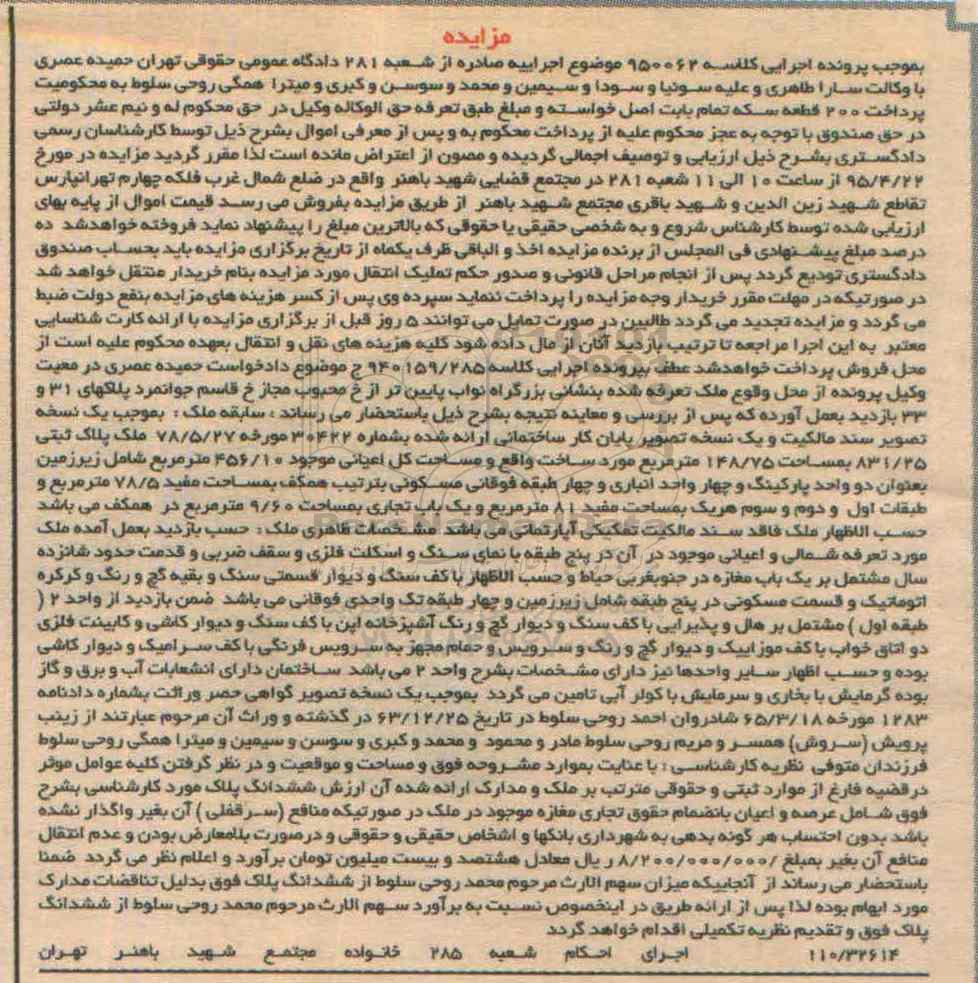 مزایده
بموجب پرونده اجرایی کلاسه ۹۵۰۰۶۲ موضوع اجراییه صادره از شعبه ۲۸۱ دادگاه عمومی حقوقی تهران حمیده عصری
با وکالت سارا طاهری و علیه سونیا و سودا و سیمین و محمد و سوسن و کبری و میترا همگی روحی سلوط به محکومیت
پرداخت ۲۰۰ قطعه سکه تمام بابت اصل خواسته و مبلغ طبق تعرفه حق الوکاله وکیل در حق محکوم له و نیم عشر دولتی
در حق صندوق با توجه به عجز محکوم علیه از پرداخت محکوم به و پس از معرفی اموال بشرح ذیل توسط کارشناسان رسمی
دادگستری بشرح ذیل ارزیابی و توصیف اجمالی گردیده و مصون از اعتراض مانده است لذا مقرر گردید مزایده در مورخ
۹۵/۴/۲۲ از ساعت ۱۰ الی ۱۱ شعبه ۲۸۱ در مجتمع قضایی شهید باهنر واقع در ضلع شمال غرب فلکه چهارم تهرانپارس
تقاطع شهید زین الدین و شهید باقری مجتمع شهید باهنر از طریق مزایده بفروش می رسد قیمت اموال از پایه بهای
ارزیابی شده توسط کارشناس شروع و به شخصی حقیقی یا حقوقی که بالاترین مبلغ را پیشنهاد نماید فروخته خواهدشد ده
درصد مبلغ پیشنهادی فی المجلس از برنده مزایده اخذ و الباقی ظرف یکماه از تاریخ برگزاری مزایده باید بحساب صندوق
دادگستری تودیع گردد پس از انجام مراحل قانونی و صدور حکم تملیک انتقال مورد مزایده بنام خریدار منتقل خواهد شد
در صورتیکه در مهلت مقرر خریدار وجه مزایده را پرداخت ننماید سپرده وی پس از کسر هزینه های مزایده بنفع دولت ضبط
می گردد و مزایده تجدید می گردد طالبین در صورت تمایل می توانند ۵ روز قبل از برگزاری مزایده با ارائه کارت شناسایی
معتبر به این اجرا مراجعه تا ترتیب بازدید آنان از مال داده شود کلیه هزینه های نقل و انتقال بعهده محکوم علیه است از
محل فروش پرداخت خواهدشد عطف بپرونده اجرایی کلاسه ۹۴۰۱۵۹/۲۸۵ ج موضوع دادخواست حمیده عصری در معیت
وکیل پرونده از محل وقوع ملک تعرفه شده بنشانی بزرگراه نواب پایین تر از خ محبوب مجاز خ قاسم جوانمرد پلاکهای ۳۱ و
۳۳ بازدید بعمل آورده که پس از بررسی و معاینه نتیجه بشرح ذیل باستحضار می رساند ؛ سابقه ملک ؛ بموجب یک نسخه
تصویر سند مالکیت و یک نسخه تصویر پایان کار ساختمانی ارائه شده بشماره ۳۰۴۲۲ مورخه ۷۸/۵/۲۷ ملک پلاک ثبتی
۸۳۱/۲۵ بمساحت ۱۴۸/۷۵ مترمربع مورد ساخت واقع و مساحت کل اعیانی موجود ۴۵۶/۱۰ مترمربع شامل زیرزمین
بعنوان دو واحد پارکینگ و چهار واحد انباری و چهار طبقه فوقانی مسکونی بترتیب همکف بمساحت مفید ۷۸/۵ مترمربع و
طبقات اول و دوم و سوم هریک بمساحت مفید ۸۱ مترمربع و یک باب تجاری بمساحت ۹/۶۰ مترمربع در همکف می باشد
حسب الاظهار ملک فاقد سند مالکیت تفکیکی آپارتمانی می باشد مشخصات ظاهری ملک ؛ حسب بازدید بعمل آمده ملک
مورد تعرفه شمالی و اعیانی موجود در آن در پنج طبقه با نمای سنگ و اسکلت فلزی و سقف ضربی و قدمت حدود شانزده
سال مشتمل بر یک باب مغازه در جنوبغربی حیاط و حسب الاظهار با کف سنگ و دیوار قسمتی سنگ و بقیه گچ و رنگ و کرکره
اتوماتیک و قسمت مسکونی در پنج طبقه شامل زیرزمین و چهار طبقه تک واحدی فوقانی می باشد ضمن بازدید از واحد ۲ (
طبقه اول ) مشتمل بر هال و پذیرایی با کف سنگ و دیوار گچ و رنگ آشپزخانه اپن با کف سنگ و دیوار کاشی و کابینت فلزی
دو اتاق خواب با کف موزاییک و دیوار گچ و رنگ و سرویس و حمام مجهز به سرویس فرنگی با کف سرامیک و دیوار کاشی
بوده و حسب اظهار سایر واحدها نیز دارای مشخصات بشرح واحد ۲ می باشد ساختمان دارای انشعابات آب و برق و گاز
بوده گرمایش با بخاری و سرمایش با کولر آبی تامین می گردد بموجب یک نسخه تصویر گواهی حصر وراثت بشماره دادنامه
۱۲۸۳ مورخه ۶۵/۳/۱۸ شادروان احمد روحی سلوط در تاریخ ۶۳/۱۲/۲۵ در گذشته و وراث آن مرحوم عبارتند از زینب
پرویش (سروش) همسر و مریم روحی سلوط مادر و محمود و محمد و کبری و سوسن و سیمین و میترا همگی روحی سلوط
فرزندان متوفی نظریه کارشناسی ؛ با عنایت بموارد مشروحه فوق و مساحت و موقعیت و در نظر گرفتن کلیه عوامل موثر
در قضیه فارغ از موارد ثبتی و حقوقی مترتب بر ملک و مدارک ارائه شده آن ارزش ششدانگ پلاک مورد کارشناسی بشرح
فوق شامل عرصه و اعیان بانضمام حقوق تجاری مغازه موجود در ملک در صورتیکه منافع (سرقفلی) آن بغیر واگذار نشده
باشد بدون احتساب هر گونه بدهی به شهرداری بانکها و اشخاص حقیقی و حقوقی و درصورت بلامعارض بودن و عدم انتقال
منافع آن بغیر بمبلغ /۸/۲۰۰/۰۰۰/۰۰۰ ریال معادل هشتصد و بیست میلیون تومان برآورد و اعلام نظر می گردد ضمنا
باستحضار می رساند از آنجاییکه میزان سهم الارث مرحوم محمد روحی سلوط از ششدانگ پلاک فوق بدلیل تناقضات مدارک
مورد ابهام بوده لذا پس از ارائه طریق در اینخصوص نسبت به برآورد سهم الارث مرحوم محمد روحی سلوط از ششدانگ
پلاک فوق و تقدیم نظریه تکمیلی اقدام خواهد گردد
۱۱۰/۳۲۶۱۴ اجرای احکام شعبه ۲۸۵ خانواده مجتمع شهید باهنر تهران